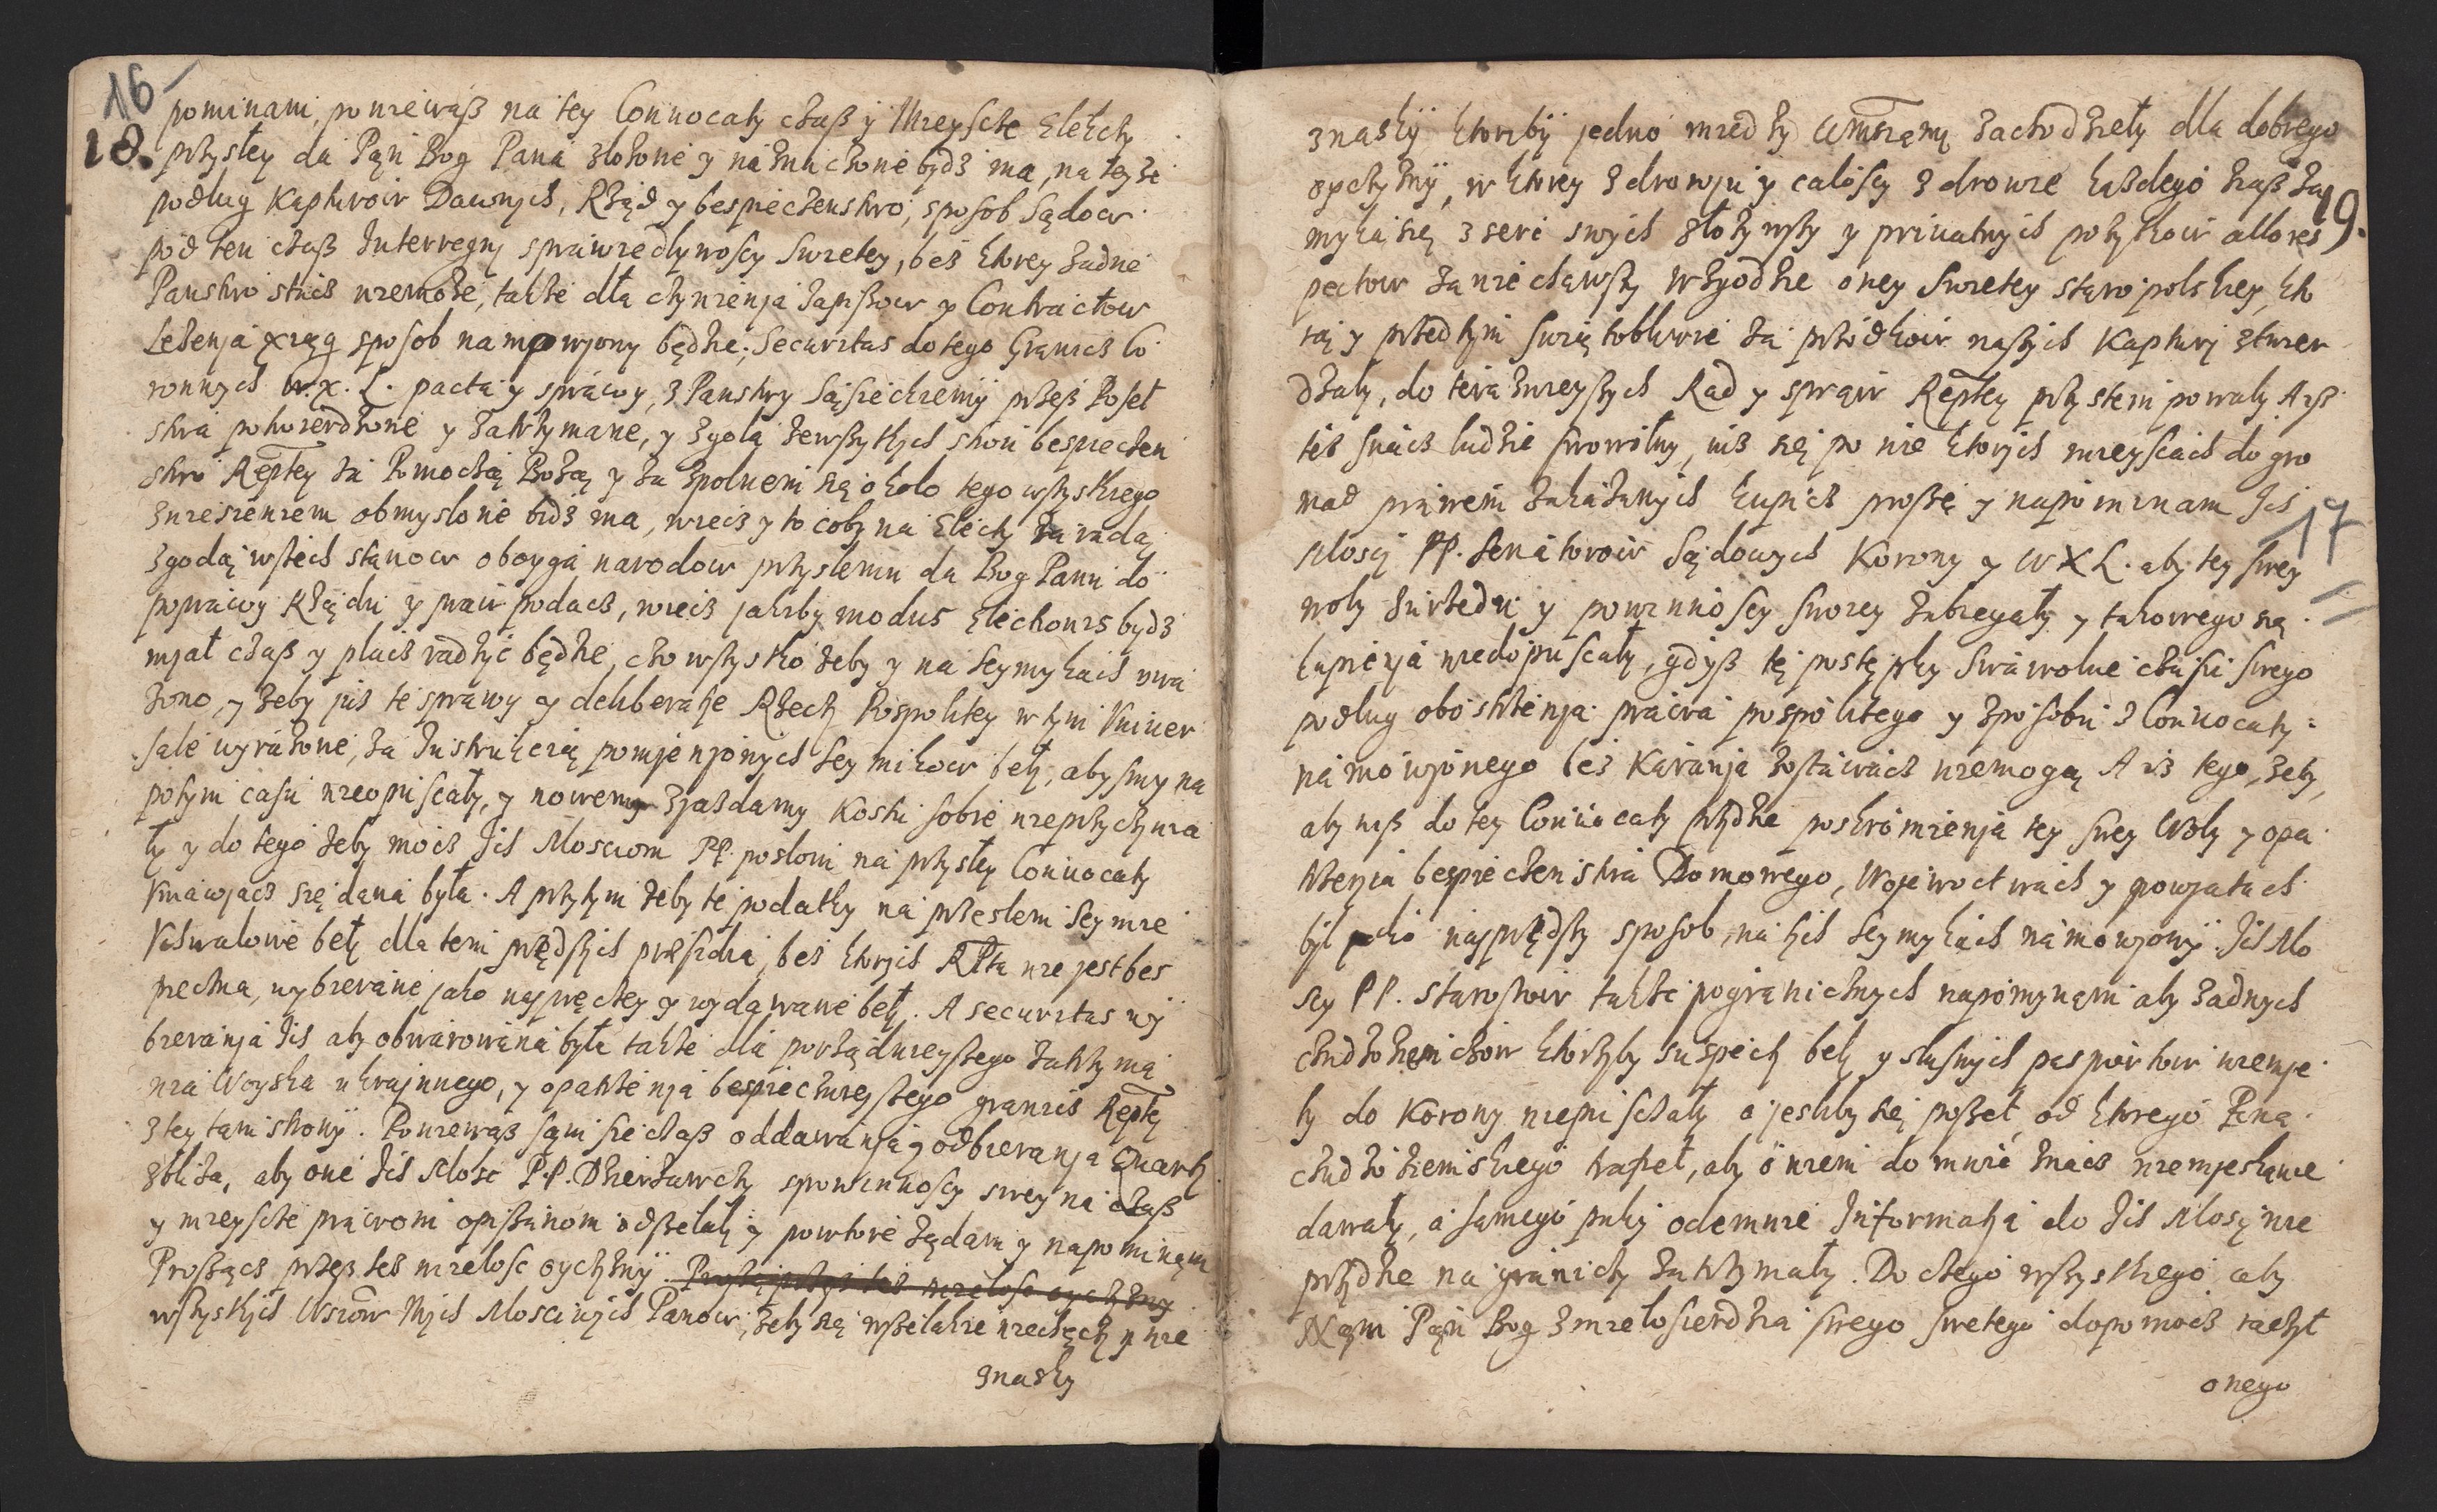 16
18.
pominam, poniewasz na tey Conuocaty czasz y Mieysce Elekcty
przyszłey da Pąn Bog Pana złożone y náznaczone bydz ma, na teyże
podług Kapturow Dawnych, Rżąd y bespieczenstwo, sposob Sądow
pod ten czasz Interregnj spráwiedlywoscy Swietey, bes ktorey żadne
Panstwo stacz niemoże, takze dla czynienja zapisow y Contractow
Leżenjá xiąg sposob namowjony będzie; Securitas do tego Graniez Co
ronnych W. X. L. pacta y spráwy, z Panstwy Sąsieckiemij przesz Posel
stwá potwierdzone y zatrzymane, y zgolą zewszytkych stron bespieczen
stwo Reptey zá Pomoczą Bożą y za zpolnem się około tego wszystkiego
zniesieniem obmyslone bidz ma, wiecz y to coby na Electy za radą
zgodą wszech stąnow oboyga narodow przyszlemu da Bog Panu do
popráwy Rżądu y praw podacz, wiecz jakiby modus Electionis bydz
mjał czasz y placz radzić będzie, czo wszystko żeby y na Seymykach uwá
żono, y żeby jus te spráwy y deliberatie Rzeczy Pospolitey w tym Vniuer
sale wyrażone, za Instrukcią pomjenjonych Seymikow beły, abysmy na
potym casu nieopuscaly, y nowemy zjazdamy Kosztu sobie nieprzyczynia
ły y do tego żeby mocz Ich Mosciom PP. posłom ná przyszłey Conuocaty
Vmáwjacz się dana była. A przytym żeby te podatky na przeszlem Seymie
Vchwalone beły dla tem prędszych præsidia, bes ktorych RPta nie jest bes
pieczna, wybieráne jako najwięczey y wydawane beły. A securitas wy
bieranja Ich aby obwárowána była takze dla porżądnieyszego zatrzymá
nia Woyska ukrajnnego, y opatrzenja bespiecznieyszego graniez Reptey
z tey tam strony. Poniewasz sąm sie czasz oddawánja y odbieranja Quarty
zbliża, aby one Ich Mosc PP. Dzierżawczy spowinnoscy swey na czasz
y mieysce práwom opiszánom odsielály y powtore żądam y napominąm
Proszącz przes też miełosc oyczyzny. Proszę przes też miełosc oyczyzny
wszystkych Wmciow Mych Mosciwych Panow, żeby się wszelakie niechęcy y nie
snasky

19.
17
snaskij ktoreby jedno miedzy Wmciąmy zachodzieły dla dobrego
oyczyzny, w ktorey zdrowju y całoscy zdrowie każdego nasz za
mykąsię z serc swych złożywszy y priuatnych pożytkow allo res
pectow zaniechawszy wzgodzie oney Swietey stáropolskiey, kto
rą y przedtym swiątobliwie zá przodkow naszych Kapturj ztwier
dzaly, do teráznieyszych Rad y sprąw Reptey przystempowaly A isz
też snacz ludzie swowolny, iusz się po nie ktorych mieyscach do gro
mad práwem zakázanych kupicz proszę y napominam Ich
Moscj PP. Senatorow Sądowych Korony y W X L. aby tey swey
woly zurzedu y powinnoscy swoiey zabiegaly y takowego się
kupienjá niedopuscały, gdysz tę postępky Swáwolne czásu swego
podług oboistrżenja práwá pospolitego y zposobu z Conuocaty
námowjonego bes Karánja zostáwacz niemogą A isz tego, żeby
aby nisz do tey Conuocaty przydzie poskromienja tey swey Woly y opa
trzenja bespieczenstwá Domowego, Wojewoctwach y powjatach
był jako najprędszy sposob, na tych seymykach námowjony. Ich Mo
scy PP. starostow takze pogranicznych napomynąm aby żadnych
cżudzożiemczow ktorzyby suspecty beły y słusnych paszportow niemje
ły do Korony niepusczały a jesliby się poseł od ktoregó Páná
cżudzożiemskiegó trafieł, aby o niem do mnie znácz niemjeskanie
dawaly, a samegó puky odemnie Informatia do Ich Moscj nie
przydzie na gránicy zatrzymáły. Do czego wszystkiego aby
Nąm Pąn Bog zmiełosierdzia swego swietego dopomocz raczył
onego